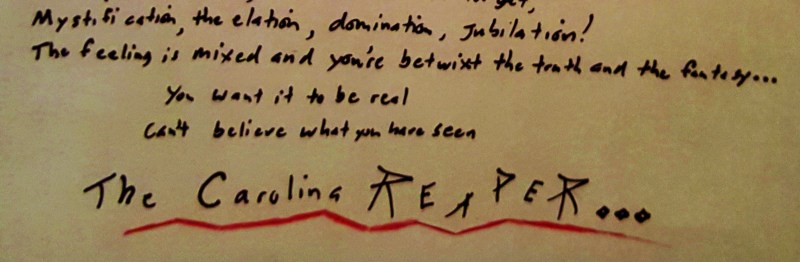 Mystification, the elation, domination, Jubilation!
The feeling is mixed and you're betwixt the truth and the fantasy...
You want it to be real
Can't believe what you have seen
The Carolina REAPER...